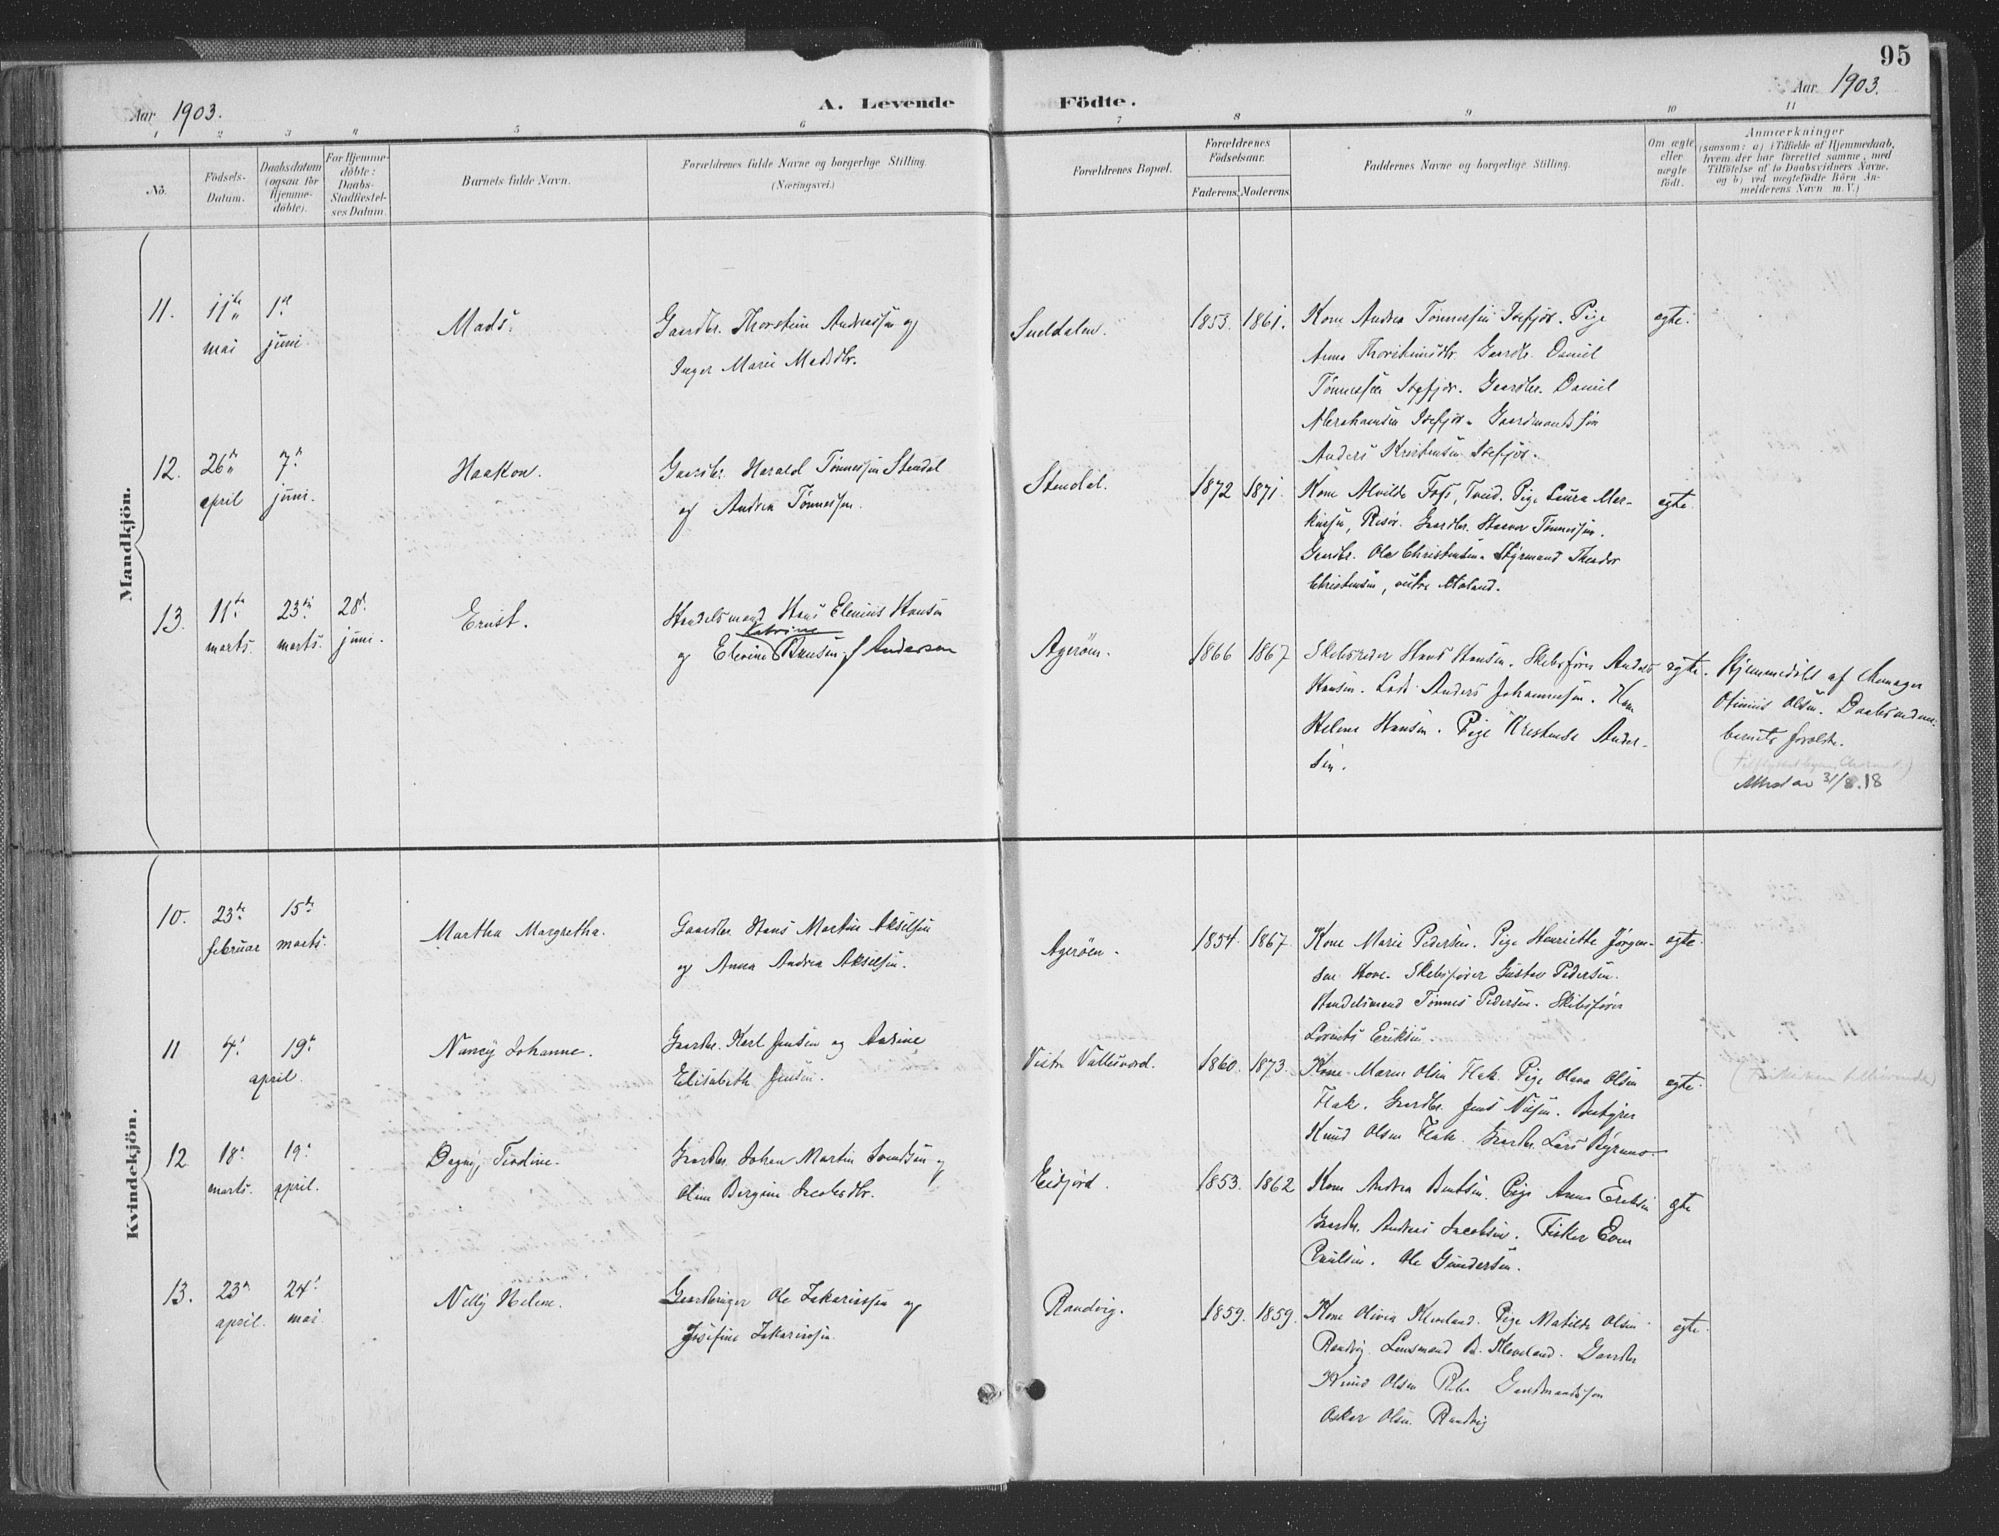 95
Aar 1903.
A. Levende
Födte.
Aar 1903.
1 2 3 4 5 6 7 8 9 10 11
No.
Födsels-
Datum.
Daabsdatum
(ogsaa for
Hjemme-
döbte).
For Hjemme-
döbte:
Daabs-
Stadfæstel-
ses Datum.
Barnets fulde Navn.
Forældrenes fulde Navne og borgerlige Stilling.
(Næringsvei.)
Forældrenes Bopæl.
Forældrenes
Födselsaar.
Faderens. Moderens.
Faddernes Navne og borgerlige Stilling.
Om ægte
eller
uægte
födt.
Anmærkninger
(saasom: a) i Tilfælde af Hjemmedaab,
hvem der har forrettet samme, med
Tilföielse af to Daabsvidners Navne,
og b) ved uægtefödte Börn An-
melderens Navn m. V.)
Mandkjön.
11. 11te mai 1ste juni.
Mads.
Gaardbr. Thorstein Andreassen og
Inger Marie Madsdtr.
1853. 1861.
Kone Andrea Tønnessen
Pige
Anna Thorsteinsdtr. Gaardbr. Daniel
Tønnessen
Gaardbr. Daniel
Abrahamsen
Gaardmandssøn
Anders Kristensen
egte.
12. 26de april 7de juni.
Haakon.
Gaardbr. Harald Tønnessen Stendal
og Andrea Tønnessen.
Stendal.
1872 1871.
Kone Alvilde Foss, Tved. Pige Laura
Risør. Gaardbr. Tønnessen.
Gaardbr. Ole Christensen. Styrmand Theodor
Christensen,
egte.
13. 11te marts. 23de marts. 28de juni.
Ernst.
Handelsmand Hans Elenius Hansen
Katrine
og Elevine Hansen f. Andersen
Agerøen.
1866 1867
Skibsreder Hans Hansen. Skibsfører Anders
Hansen. Lods Anders Johannessen. Kone
Helene Hansen. Pige Ander-
sen.
egte.
Hjemmedøbt af
Olsen.
barnets forældre.
31/8.18
Kvindekjön.
10. 23de februar 15de marts.
Martha Margretha.
Gaardbr. Hans Martin Akselsen
og Anna Andrea Akselsen.
Agerøen.
1854. 1867.
Kone Marie Pedersen. Pige Henriette Jørgen-
sen Skibsfører Gustav Pedersen.
Handelsmand Tønnes Pedersen. Skibsfører
Lorents Eriksen.
egte.
11 4de 19de
april.
Nancy Johanne.
Gaardbr. Karl Jensen og Andrine
Elisabeth Jensen.
Vestre Vallesverd.
1860. 1873.
Kone Maren Olsen Flak. Pige Olava Olsen
Flak. Gaardbr. Jens Nilsen.
Knud Olsen Flak. Gaardbr. Lars
egte.
12 18de marts. 19de april.
Dagny Teodine.
Gaardbr. Johan Martin Svendsen og
Oline Bergine Jacobsdtr.
Eidjord.
1853. 1862
Kone Andrea Bentsen. Pige Anna Eriksen
Gaardbr. Andreas Jacobsen. Fisker Even
Paulsen. Ole Gundersen.
egte
13. 23de april. 24de mai.
Nelly Helene.
Gaardbruger Ole Zakariassen og
Josefine Zakariassen.
Randvig.
1859. 1859.
Kone Olivia Kleveland. Pige Matilde Olsen
Randvig. Lensmand B. Kleveland. Gaardbr.
Knud Olsen Gaardmandssøn
Oskar Olsen Randvig
egte.